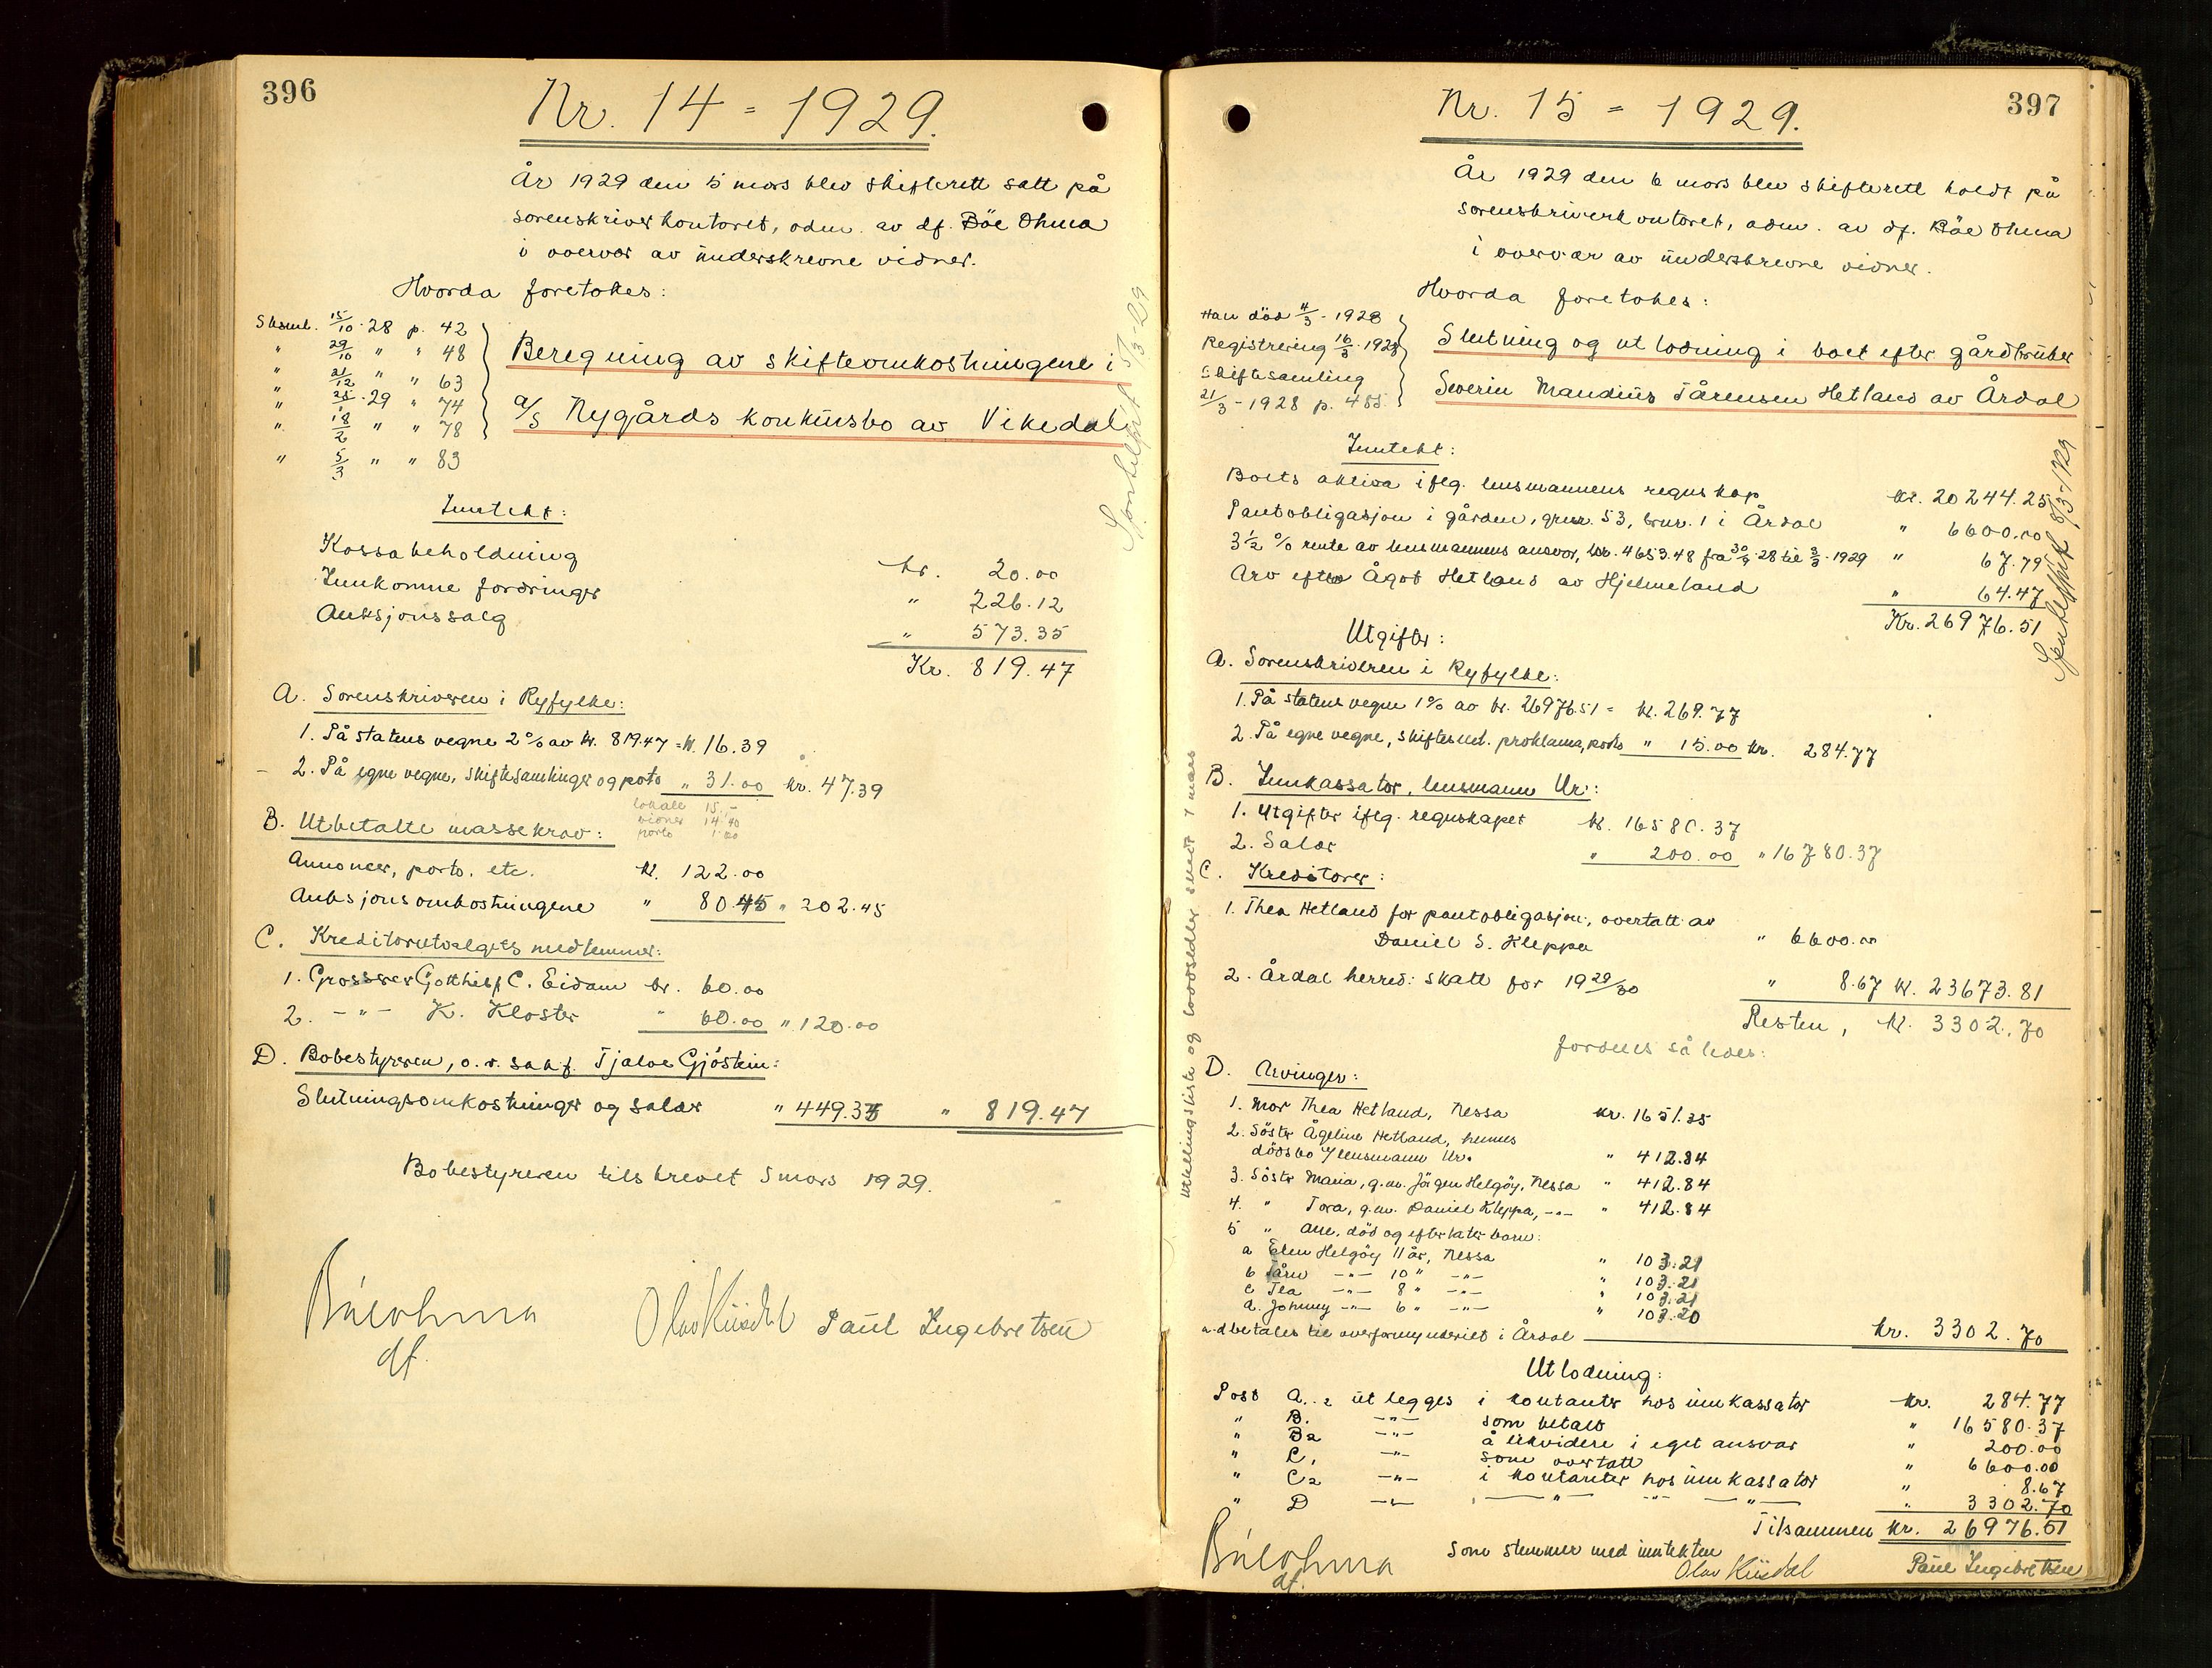 396
Nr. 14 = 1929.
År 1929 den 5 mars blev skifterett satt på
sorenskriverkontoret, adm. av df. Böe Ohma
i overvær av underskrevne vidner.
Hvorda foretokes:
Sksml. 15/10·28 p. 42
" 29/10 " " 48
" 21/12 " " 63
" 25/1·29 " 74
" 18/2 " " 78
" 5/3 " " 83
Beregning av skifteomkostningene i
a/s Nygårds konkursbo av Vikedal
Sportelført 5/3-29
Inntekt:
Kassabeholdning kr. 20.00
Innkomne fordringer " 226.12
Auksjonssalg " 573.35
Kr. 819.47
A. Sorenskriveren i Ryfylke:
1. På statens vegne 2% av kr. 819.47 = kr. 16.39
2. På egne vegne, skiftesamlinger og porto " 31.00 kr. 47.39
lokale 15.-
vidner 14.40
porto 1.60
B. Utbetalte massekrav:
Annoncer, porto. etc. kr. 122.00
Auksjonsomkostningene " 80.45 " 202.45
C. Kreditorutvalgets medlemmer:
1. Grosserer Gotthilf C. Eidam kr. 60.00
2. -"- K. Kloster " 60.00 " 120.00
D. Bobestyreren, o.r.sakf. Tjalve Gjöstein:
Slutningsomkostninger og salær " 449.35 " 819.47
Bobestyreren tilskrevet 5 mars 1929.
Böe Ohma
df.
Olav Küsdal Paul Ingebretsen
397
Nr. 15 = 1929.
År 1929 den 6 mars blev skifterett holdt på
sorenskriverkontoret, adm. av df. Böe Ohma
i overvær av underskrevne vidner.
Hvorda foretokes:
Han död 4/3-1928
Registrering 16/3·1928
Skiftesamling
21/3-1928 p. 455
Slutning og utlodning i boet efter gårdbruker
Severin Mandius Tårensen Hetland av Årdal
Sportelført 8/3-1929
Inntekt:
Boets aktiva iflg. lensmannens regnskap kr. 20244.25
Pantobligasjon i gården, gnr. 53, bnr. 1 i Årdal " 6600.00
3½ % rente av lensmannens ansvar, kr. 4653.48 fra 30/9·28 til 3/3·1929 " 67.79
Arv efter Ågot Hetland av Hjelmeland " 64.47
Kr. 26976.51
Utgifter:
A. Sorenskriveren i Ryfylke:
1. På statens vegne 1% av kr. 26976.51 = kr. 269.77
2. På egne vegne, skiftesml. proklama, porto " 15.00 kr. 284.77
B. Innkassator, lensmann Ur:
1. Utgifter iflg. regnskapet kr. 16580.37
2. Salær " 200.00 " 16780.37
C. Kreditorer:
1. Thea Hetland for pantobligasjon, overtatt av
Daniel S. Kleppa " 6600.00
2. Årdal herred: skatt for 1929/30 " 8.67 kr. 23673.81
Resten, kr. 3302.70
fordeles således:
D. Arvinger:
1. Mor Thea Hetland, Nessa kr. 1651.35
2. Söster Ågeline Hetland, hennes
dödsbo v/ lensmann Ur. " 412.84
3. Söster Maria, g.m. Jörgen Helgöy, Nessa " 412.84
4. " Tora, g.m. Daniel Kleppa, -"- " 412.84
5 " Ane, död og efterlater barn:
a Elen Helgöy 11 år, Nessa " 103.21
b Tårn -"- 10 " -"- " 103.21
c Tea -"- 8 " -"- " 103.21
d. Johnny -"- 6 " -"- " 103.20
a-d betales til overformynderiet i Årdal kr. 3302.70
Utlodning:
Post A1-2 utlegges i kontanter hos innkassator kr. 284.77
" B1 -"- som betalt " 16580.37
" B2 -"- å likvidere i eget ansvar " 200.00
" C1 -"- som overtatt " 6600.00
" C2 -"- i kontanter hos innkassator " 8.67
" D -"- -"- -"- -"- " 3302.70
Tilsammen kr. 26976.51
som stemmer med inntekten
Böe Ohma
df.
Olav Küsdal Paul Ingebretsen
og lodsedler sendt 7 mars